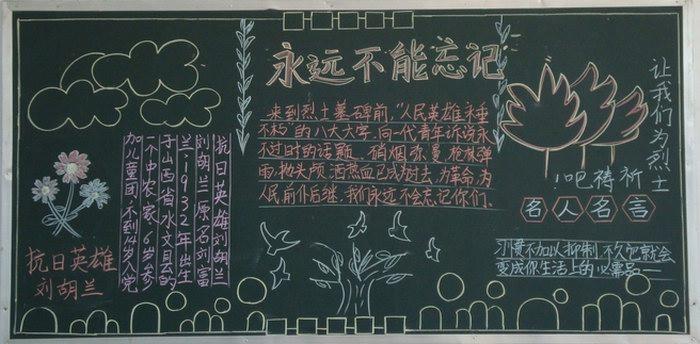 永远不能忘记
来到烈士墓碑前，“人民英雄永垂
不朽”的八大大字，向一代青年诉说永
不过时的话题。硝烟弥漫，枪林弹
雨，抛头颅，洒热血已成过去，为革命，为
人民，前仆后继，我们永远不会忘记你们。
抗日英雄刘胡兰
刘胡兰原名刘富
兰，1932年出生
于山西省水文县的
一个中农家，8岁参
加儿童团，不到14岁入党
抗日英雄
刘胡兰
让我们为烈士
祈祷吧！
名人名言
习惯不加以抑制，不久它就会
变成你生活上的必需品——